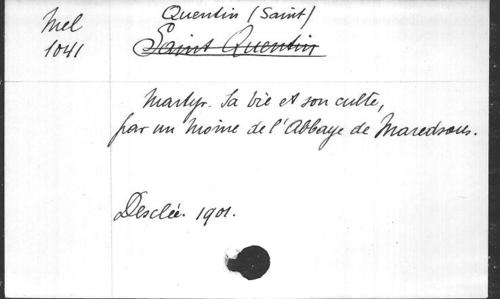 Mel
1041
Quentin (Saint)
Saint Quentin
Martyr. Sa vie et son culte,
par un moine de l'Abbaye de Maredsous.
Desclée. 1901.